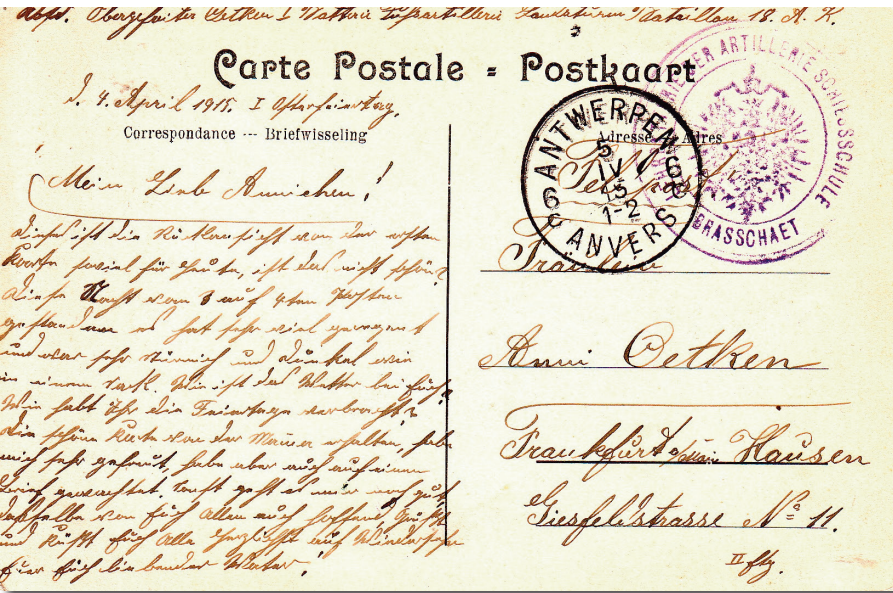 Absd. Obergefreiter Oetken I Batterie Fußartillerie Landsturm Bataillon 18. A. K.
Carte Postale = Postkaart
d. 4. April 1915. I Osterfeiertag.
Correspondance --- Briefwisseling
Adresse Adres
ARTILLERIE SCHIESSSCHULE
BRASSCHAET
ANTWERPEN
5
IV
15
1-2
6 6
ANVERS
Feldpost
Mein Lieb Annichen!
Dieses ist die Rückansicht von der ersten
Karte soviel für heute, ist das nicht schön?
Diese Nacht vom 3 auf 4ten Posten
gestanden es hat sehr viel geregnet
und war sehr stürmisch und dunkel wie
in einem Sack. Wie ist das Wetter bei Euch?
Wie habt Ihr die Feiertage verbracht?
Die schöne Karte von der Mama erhalten, habe
mich sehr gefreut, habe aber auch auf einen
Brief gewartet. Sonst geht es mir noch gut,
dasselbe von Euch Allen auch hoffend, Grüßt
und Küßt Euch Alle herzlichst auf Wiedersehn
Euer Euch liebender Vater!
Fräulein
Anni Oetken
Frankfurt a/Main Hausen
Giesfeldstrasse No 11.
II